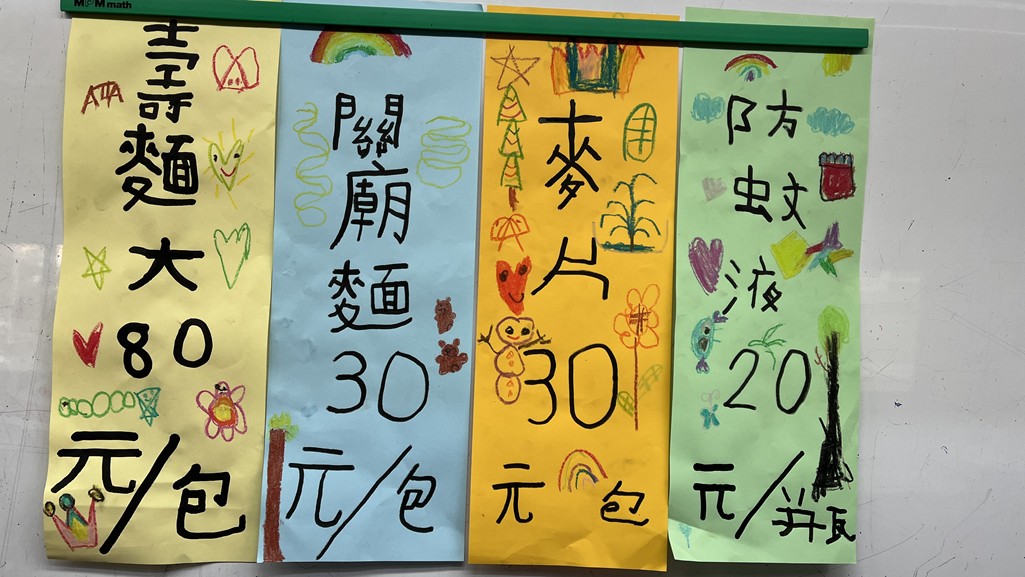 MPM math
壽
麵
大
80
元/包
關
廟
麵
30
元/包
麥
片
30
元 包
防
蚊
液
20
元/瓶